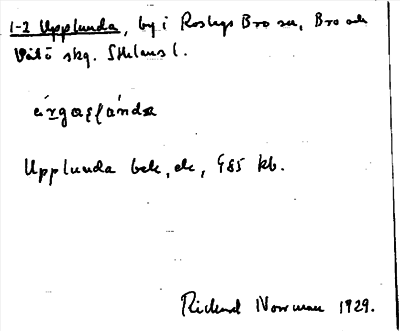 1-2 Upplunda, by i Roslags Bro sn, Bro och
Vätö skg. Sthlms l.
Upplunda bek, ek, 485 kb.
Rickard Norrman 1929.